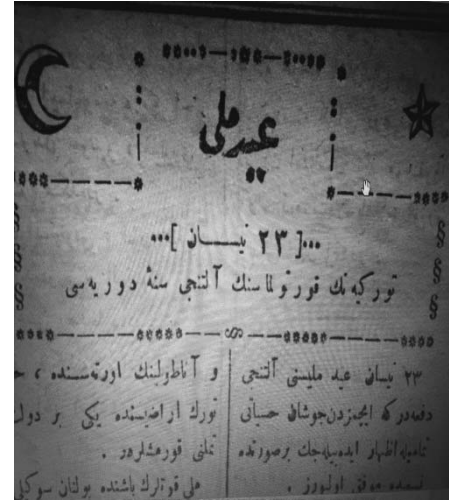 عيد ملی
...[ ٢٣ نيسان ]...
توركيه‌نك قورتولماسنك آلتنجی سنۀ دوريه‌سی
٢٣ نيسان عيد مليسنی آلتنجی
دفعه‌در كه ايچمزدن جوشان حسياتی
تماميله اظهار ايده‌بيله‌جك برصورتده
موفق اولورز .
و آناطولينك اورته‌سنده ،
تورك اراضيسنده يكی بر دول
تملنی قورمشلردر .
ملی قوتلرك باشنده بولنان سوكيلی